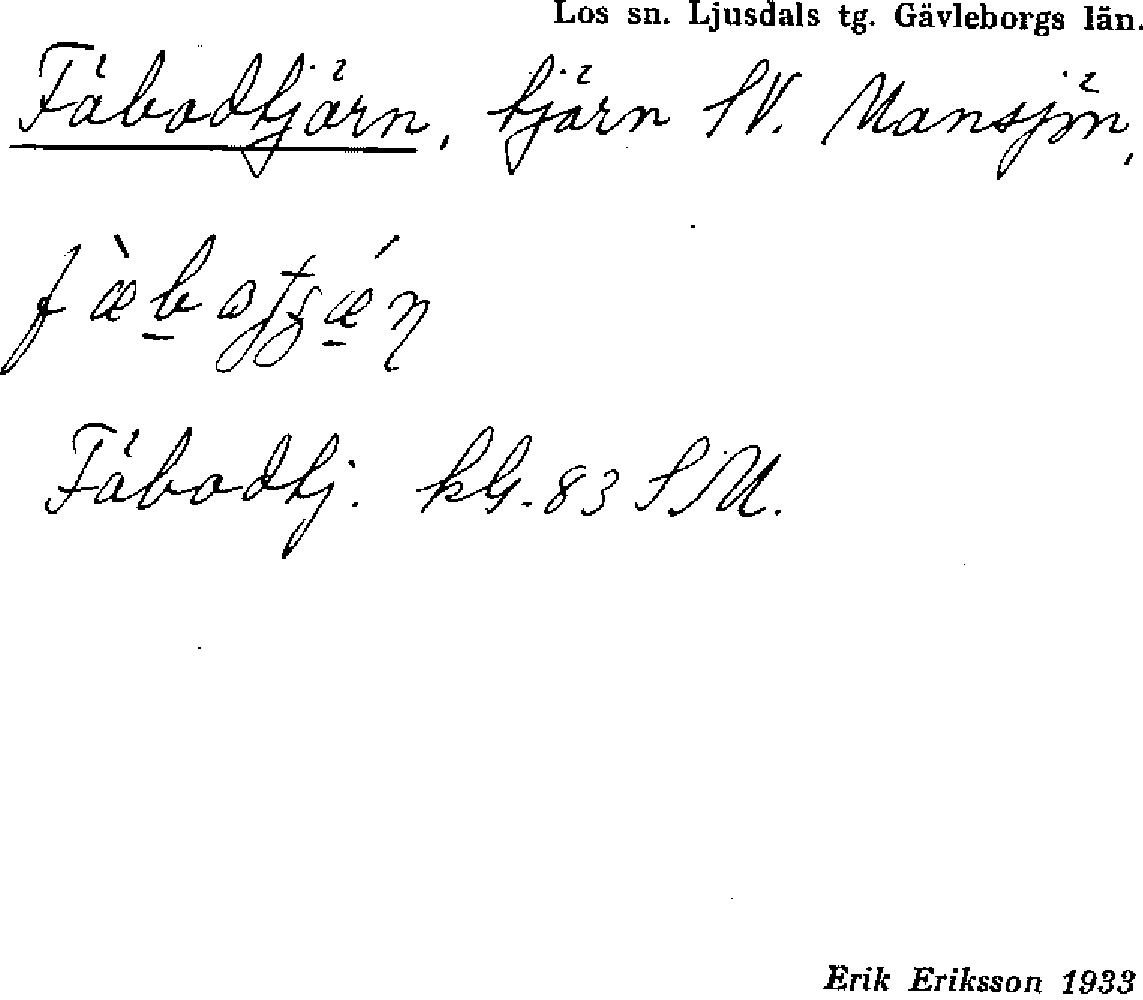 Los sn. Ljusdals tg. Gävleborgs län.
Fäbodtjärn, tjärn SV. Mansjön,
Fäbodtj. kbl. 83 SV.
Erik Eriksson 1933